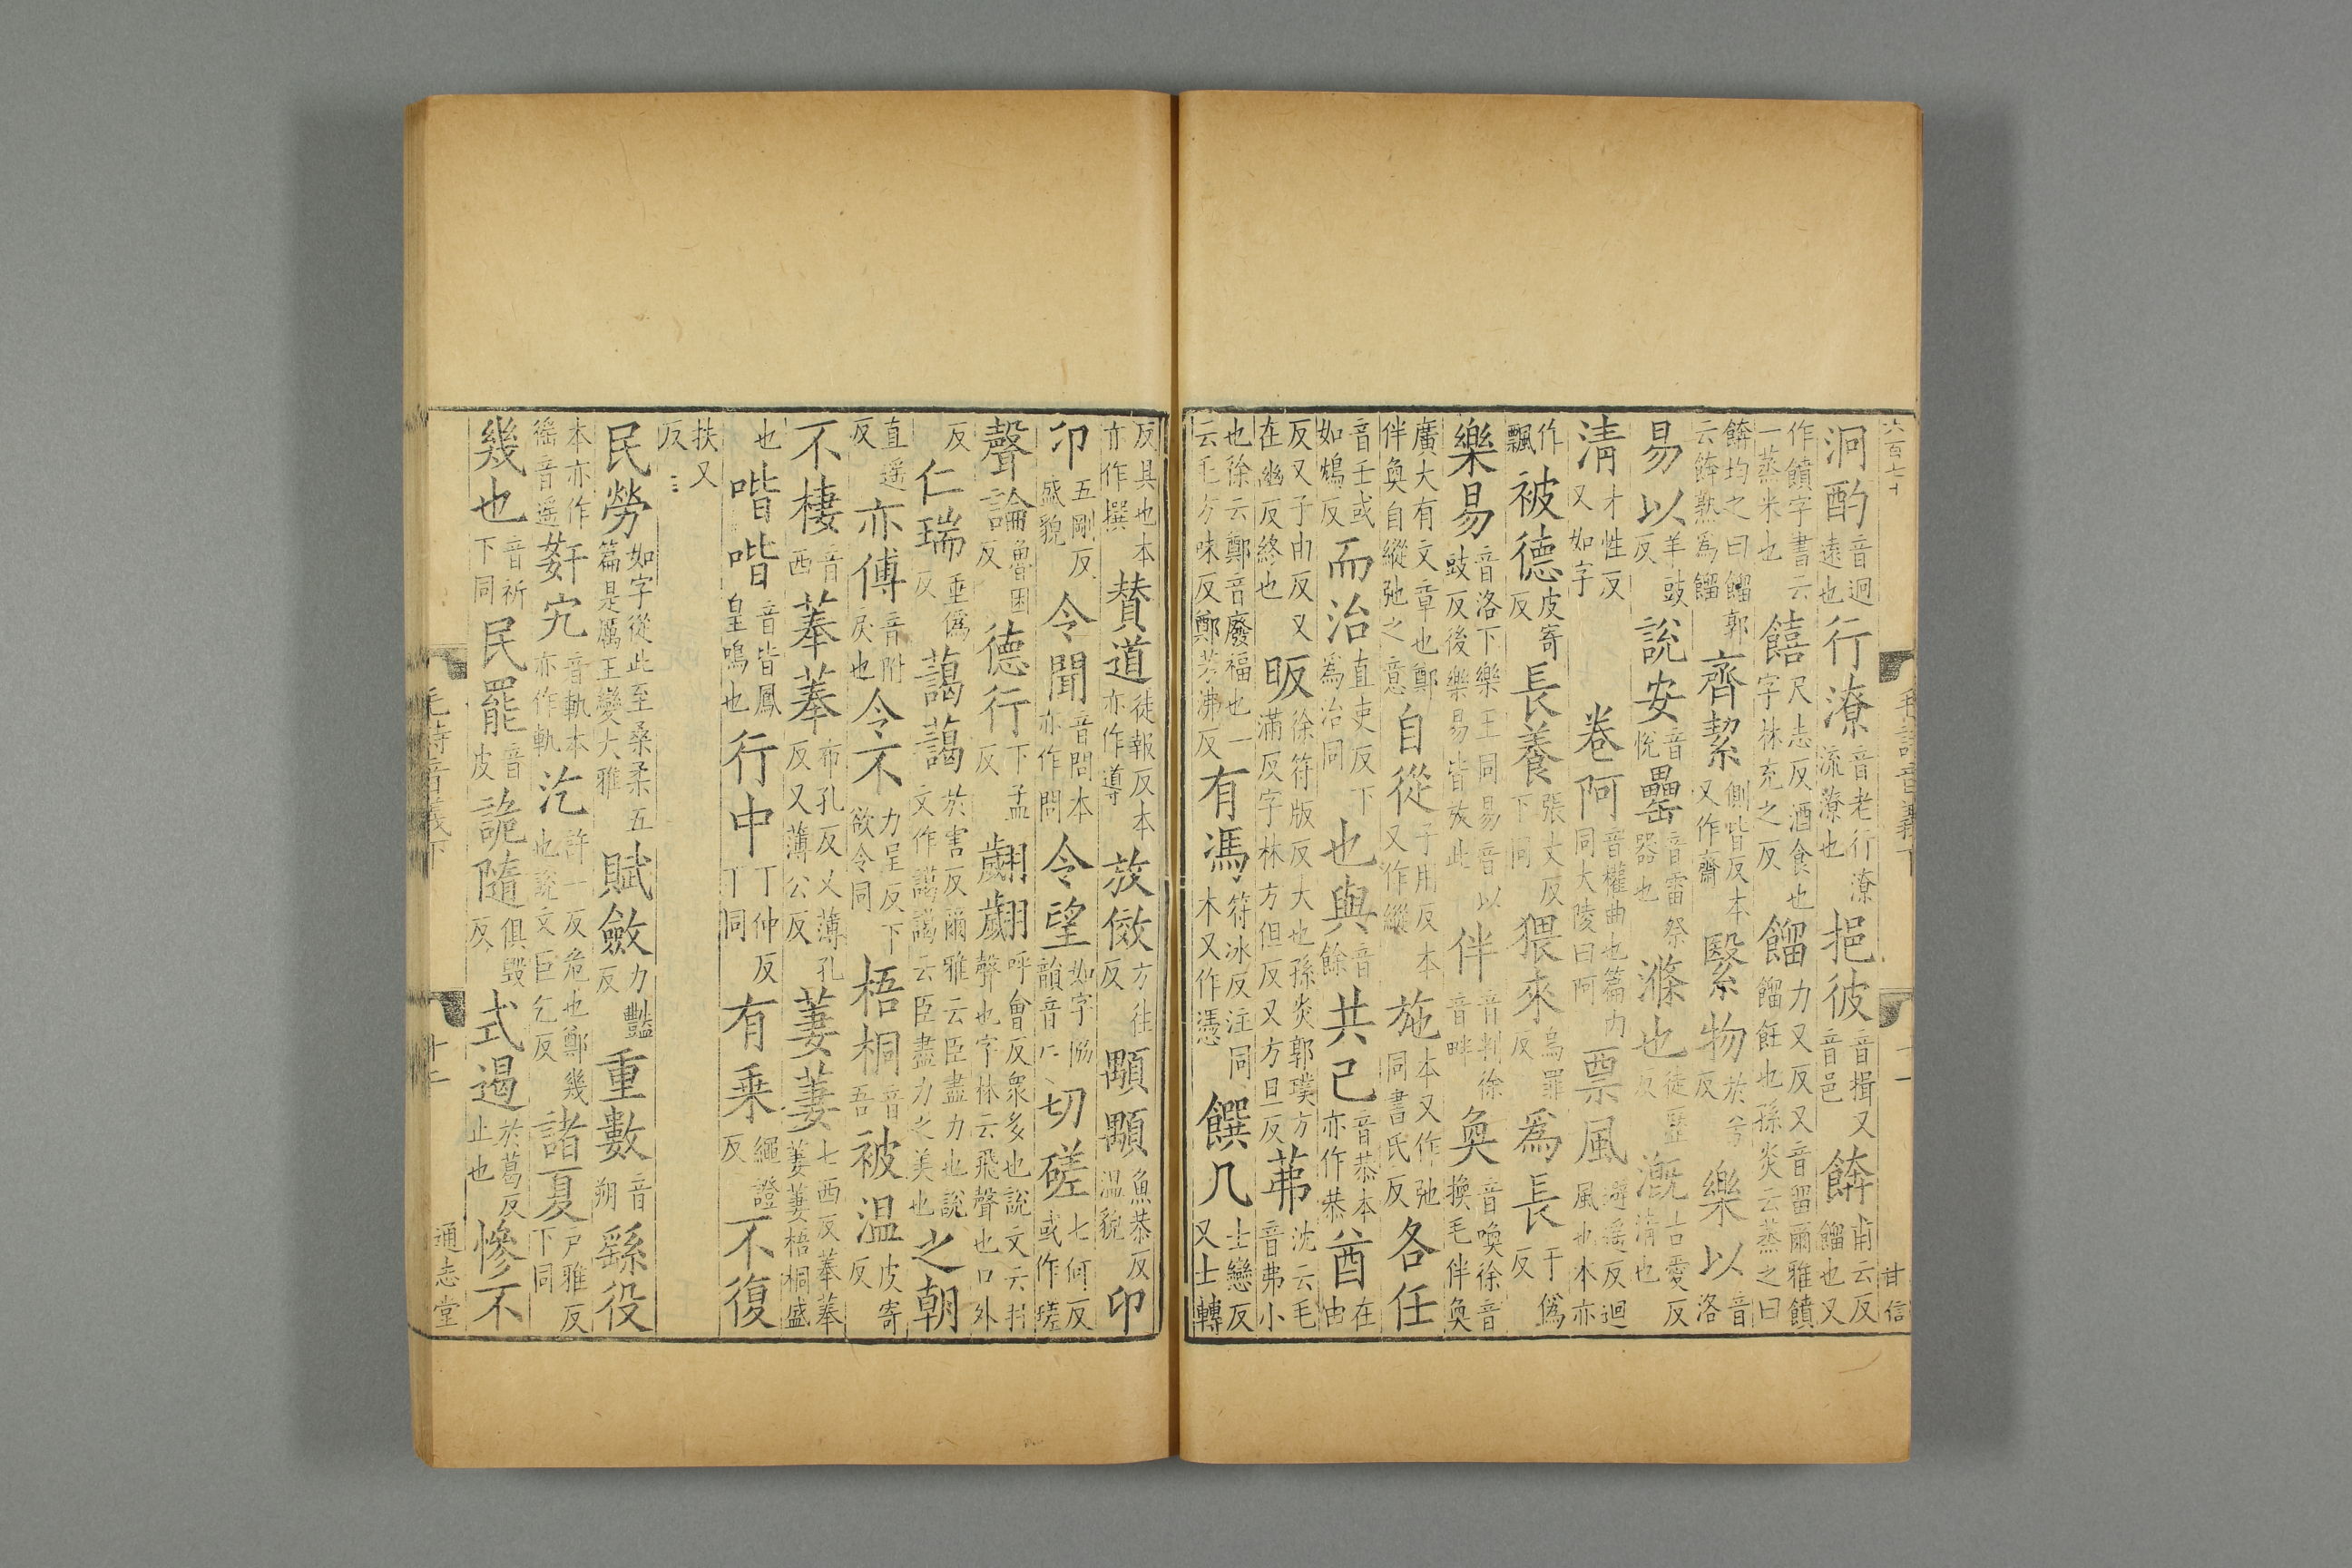 六百七十 毛詩音義下 十一 甘信
泂酌音迥遠也行潦音老行潦流潦也挹彼音揖又音邑餴甫云反餾也又
作饙字書云一蒸米也饎尺志反酒食也字林充之反餾力又反又音留爾雅饙餾飪也孫炎云蒸之曰
餴均之曰餾郭云餴熟爲餾齊絜側皆反本又作齋繄物於兮反樂以音洛
易以羊豉反說安音悅罍音雷祭器也滌也徒歷反漑古愛反清也
清才性反又如字卷阿音權曲也篇内同大陵曰阿票風避遥反迴風也本亦
作飄被德皮寄反長養張丈反下同猥來烏罪反爲長于僞反
樂易音洛下樂王同易音以豉反後樂易皆放此伴音判徐音畔奐音喚徐音換毛伴奐
廣大有文章也鄭伴奐自縱弛之意自從子用反本又作縱施本又作弛同書氏反各任
音壬或如鴆反而治直吏反下爲治同也與音餘共己音恭本亦作恭酋在由
反又子由反又在幽反終也昄徐符版反大也孫炎郭璞方滿反字林方但反又方旦反茀沈云毛音弗小
也徐云鄭音廢福也一云毛方味反鄭芳沸反有馮符冰反注同本又作憑饌几士戀反又士轉
反具也本亦作撰賛道徒報反本亦作導放傚方往反顒顒魚恭反温貌卬
卬五剛反盛貌令聞音問本亦作問令望如字協韻音亡切磋七何反或作瑳
聲論魯困反德行下孟反翽翽呼會反衆多也說文云羽聲也字林云飛聲也口外
反仁瑞垂僞反藹藹於害反爾雅云臣盡力也說文作譪譪云臣盡力之美也之朝
直遥反亦傅音附戾也令不力呈反下欲令同梧桐音吾被温皮寄反
不棲音西菶菶布孔反又薄孔反又薄公反萋萋七西反菶菶萋萋梧桐盛
也喈喈音皆鳳皇鳴也行中丁仲反下同有乗繩證反不復
扶又反
民勞如字從此至桑柔五篇是厲王變大雅賦斂力豔反重數音朔繇役
本亦作徭音遥姦宄音軌本亦作軌汔許一反危也鄭幾也說文巨乞反諸夏戶雅反下同
幾也音祈下同民罷音皮詭隨俱毀反式遏於葛反止也慘不
毛詩音義下 十二 通志堂